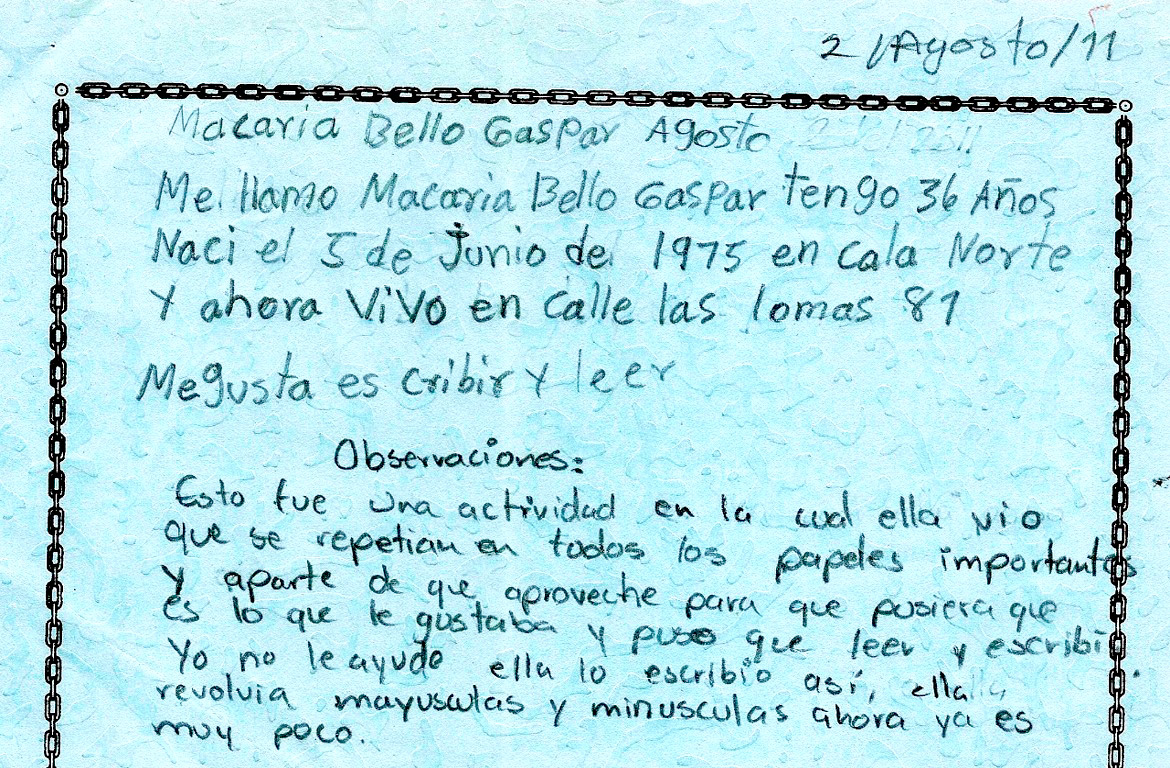 2/Agosto/11
Macaria Bello Gaspar Agosto
Me llamo Macaria Bello Gaspar tengo 36 Años
Naci el 5 de Junio de 1975 en cala Norte
Y ahora ViVo en calle las lomas 81
Megusta es cribir y leer
Observaciones:
Esto fue una actividad en la cual ella vio
que se repetian en todos los papeles importantes
y aparte de que aproveche para que pusiera que
es lo que le gustaba y puso que leer y escribi
Yo no le ayude ella lo escribio así, ella
revolvia mayusculas y minusculas ahora ya es
muy poco.